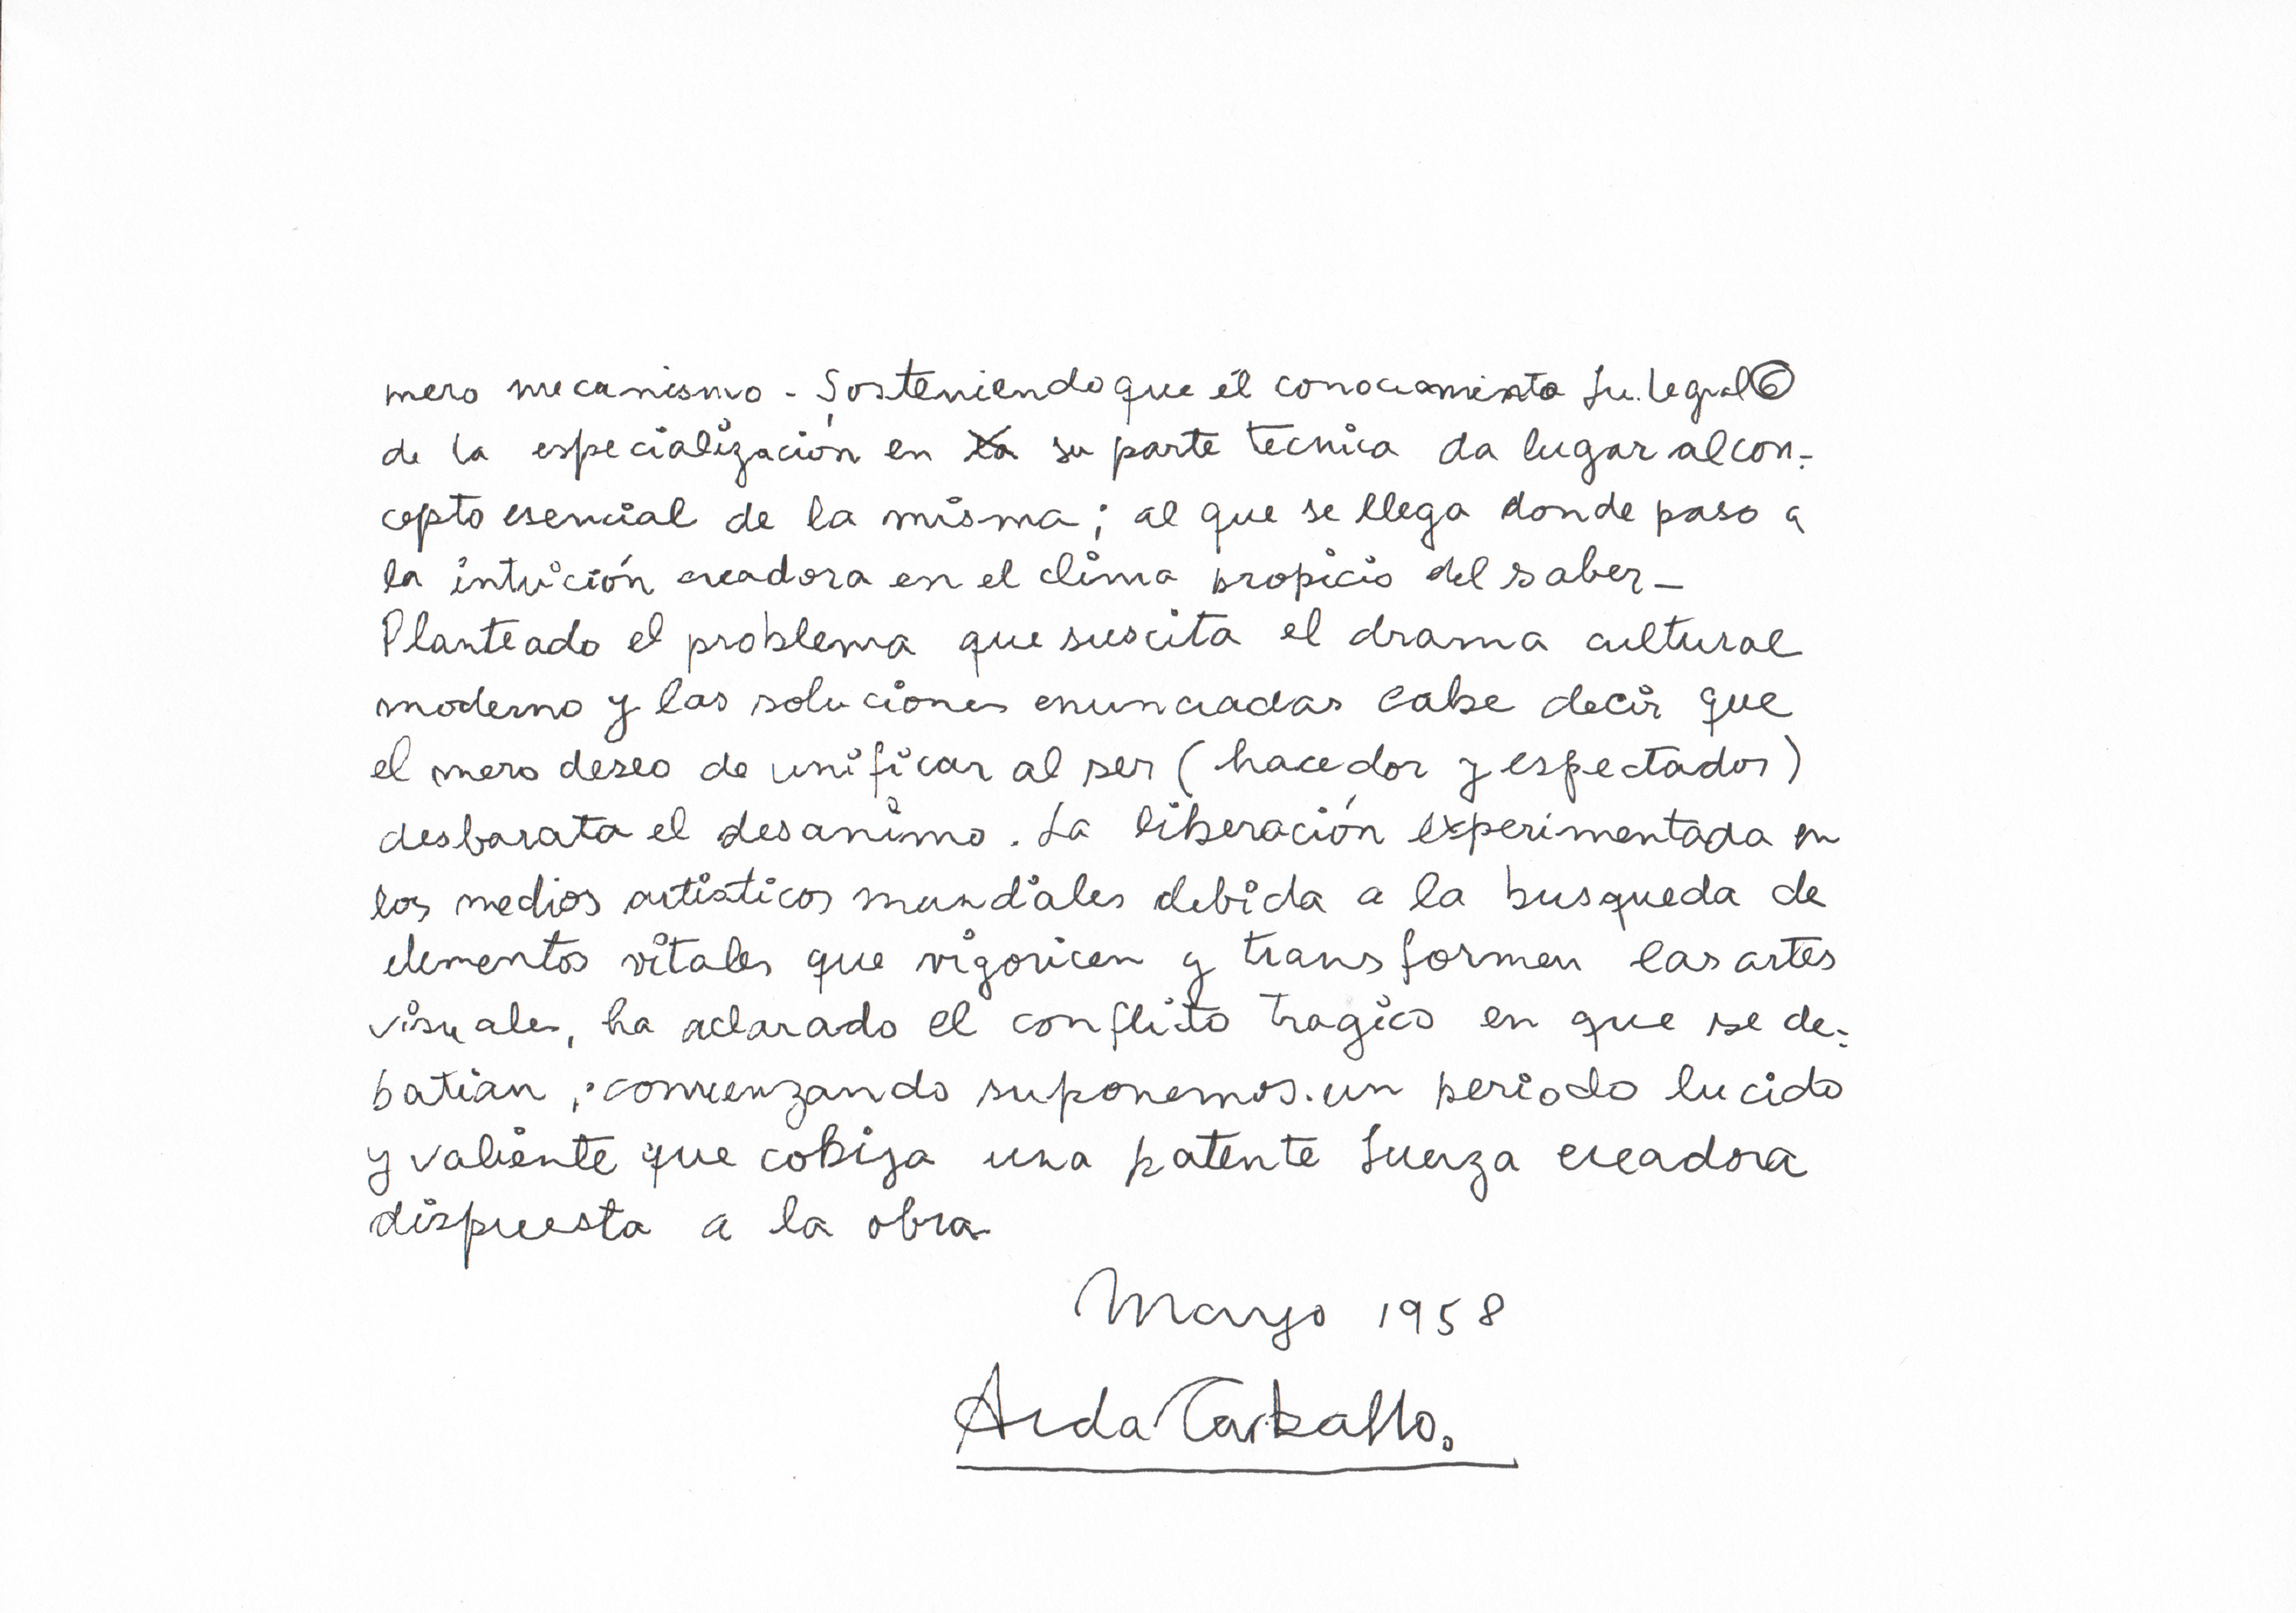 mero mecanismo - Sosteniendo que el conocimiento
de la especialización en la su parte tecnica da lugar al con-
cepto esencial de la misma; al que se llega donde paso a
la intuición creadora en el clima propicio del saber-
Planteado el problema que suscita el drama cultural
moderno y las soluciones enunciadas cabe decir que
el mero deseo de unificar al ser (hacedor y espectador)
desbarata el desanimo. La liberación experimentada en
los medios artisticos mundiales debida a la busqueda de
elementos vitales que vigoricen y transformen las artes
visuales, ha aclarado el conflicto tragico en que se de-
batian, comienzando suponemos un periodo lucido
y valiente que cobija una patente fuerza creadora
dispuesta a la obra
Mayo 1958
Aida Carballo.